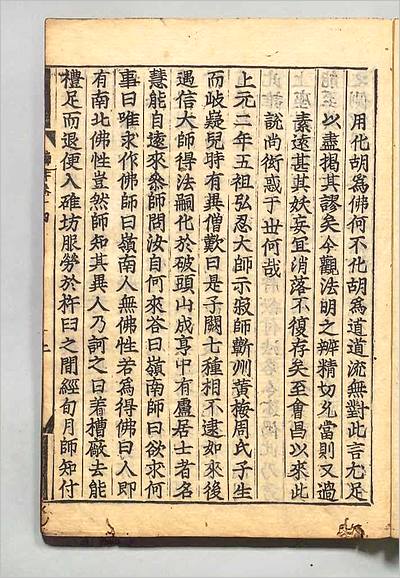 用化胡爲佛何不化胡爲道道流無對此言尤足
以盡揭其謬矣今觀法明之辨精切允當則又過
素遠甚其妖妄宜消落不復存矣至會昌以來此
說尚衒惑于世何哉
上元二年五祖弘忍大師示寂師蘄州黄梅周氏子生
而岐嶷兒時有異僧歎曰是子闕七種相不逮如來後
遇信大師得法嗣化於破頭山咸亨中有盧居士者名
慧能自遠來叅師問汝自何來荅曰嶺南師曰欲求何
事曰唯求作佛師曰嶺南人無佛性若爲得佛曰人即
有南北佛性豈然師知其異人乃訶之曰著槽厰去能
禮足而退便入碓坊服勞於杵臼之間經旬月師知付